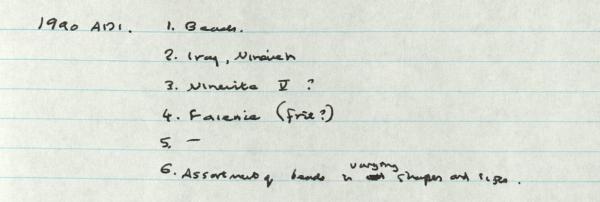 1990 AD1. 1. Beads.
2. Iraq, Nineveh
3. Ninevite V ?
4. Faience (frit?)
5. —
6. Assortment of beads in varying shapes and sizes.